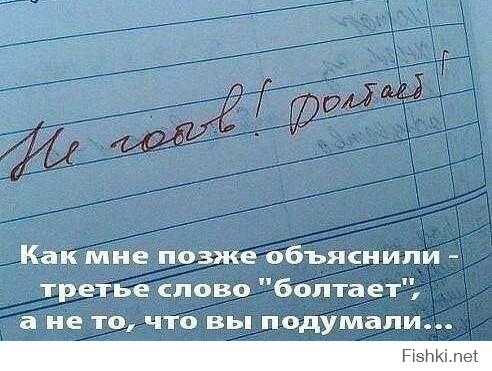 Не готов! Болтает!
Как мне позже объяснили -
третье слово "болтает",
а не то, что вы подумали...
Fishki.net